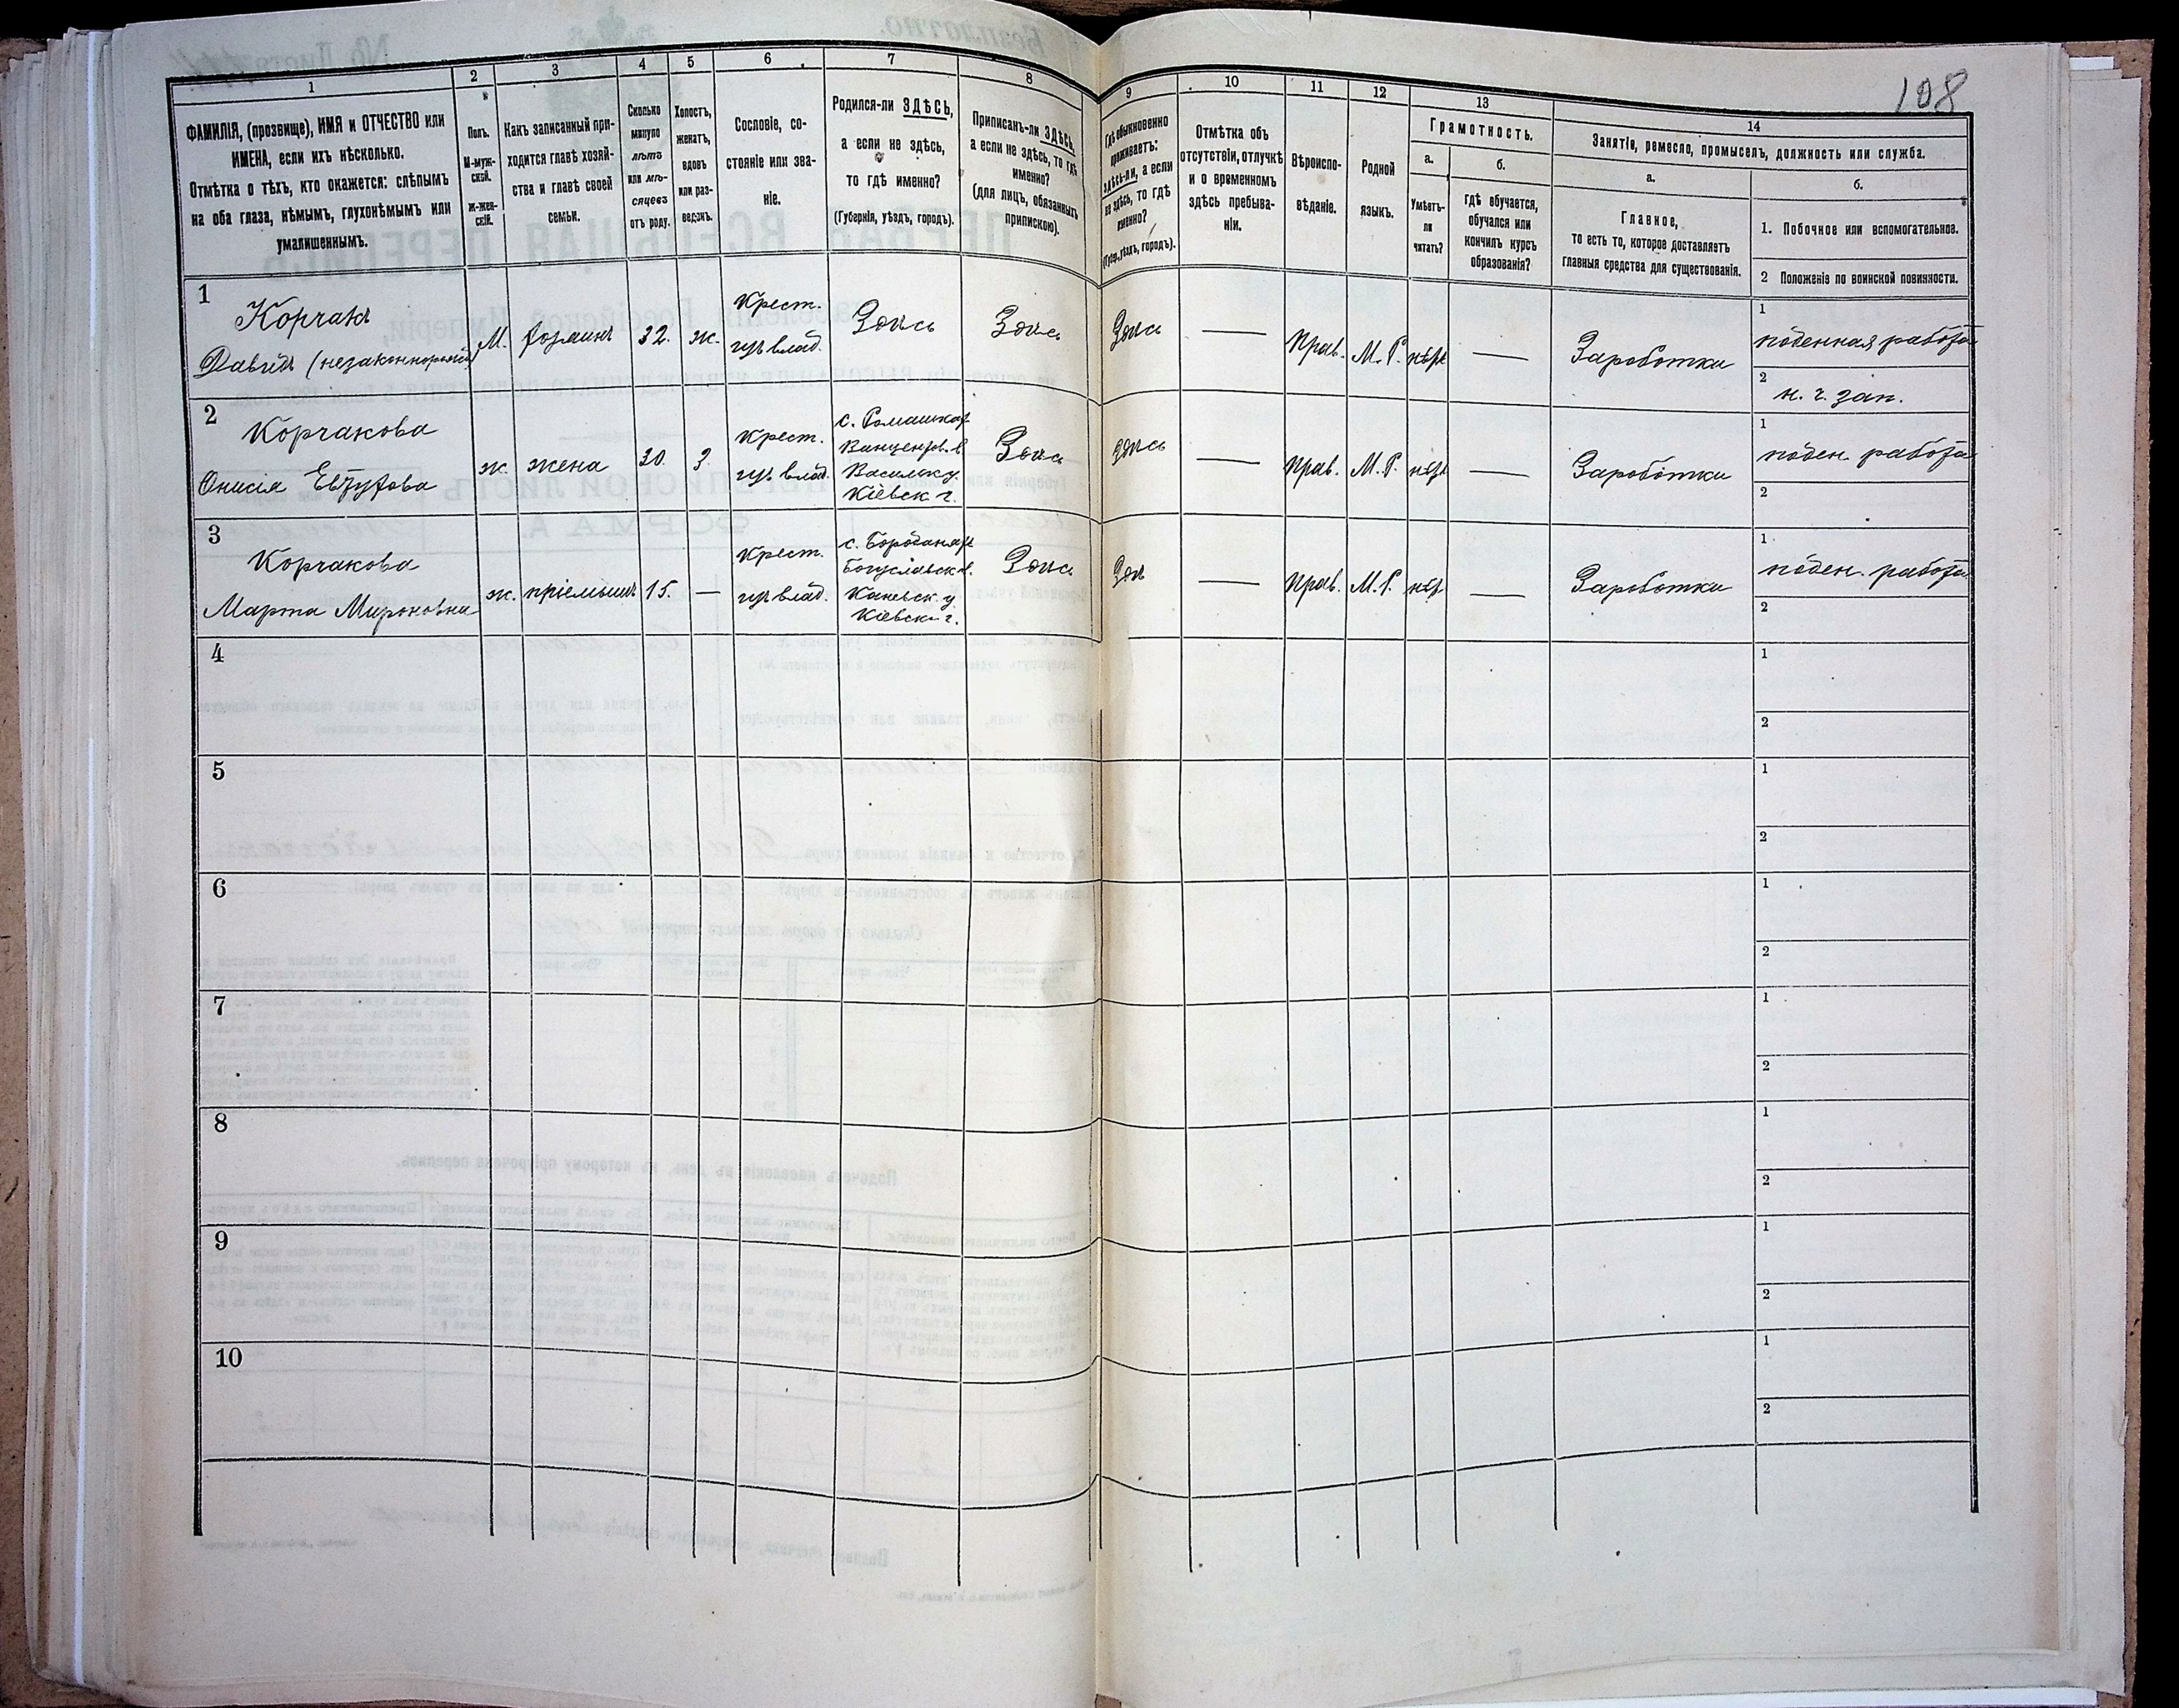 108
1
2
3
4
5
6
7
8
9
10
11
12
13
14
ФАМИЛІЯ, (прозвище), ИМЯ и ОТЧЕСТВО или
ИМЕНА, если ихъ нѣсколько.
Отмѣтка о тѣхъ, кто окажется: слѣпымъ
на оба глаза, нѣмымъ, глухонѣмымъ или
умалишеннымъ.
Полъ.
М-муж-
ской.
Ж-жен-
скій.
Какъ записанный при-
ходится главѣ хозяй-
ства и главѣ своей
семьи.
Сколько
минуло
лѣтъ
или мѣ-
сяцевъ
отъ роду.
Холостъ,
женатъ,
вдовъ
или раз-
веденъ.
Сословіе, со-
стояніе или зва-
ніе.
Родился-ли ЗДѢСЬ,
а если не здѣсь,
то гдѣ именно?
(Губернія, уѣздъ, городъ).
Приписанъ-ли ЗДѢСЬ,
а если не здѣсь, то гдѣ
именно?
(для лицъ, обязанныхъ
припискою).
Гдѣ обыкновенно
проживаетъ:
здѣсь-ли, а если
не здѣсь, то гдѣ
именно?
(Губер., уѣздъ, городъ).
Отмѣтка объ
отсутствіи, отлучкѣ
и о временномъ
здѣсь пребыва-
ніи.
Вѣроиспо-
вѣданіе.
Родной
языкъ.
Грамотность.
а.
б.
Умѣетъ-
ли
читать?
Гдѣ обучается,
обучался или
кончилъ курсъ
образованія?
Занятіе, ремесло, промыселъ, должность или служба.
а.
б.
Главное,
то есть то, которое доставляетъ
главныя средства для существованія.
1. Побочное или вспомогательное.
2 Положеніе по воинской повинности.
1
Корчакъ
Давидъ (незаконнорожд)
М.
хозяинъ
32.
ж.
Крест.
изъ влад.
Здѣсь
Здѣсь
Здѣсь
—
Прав.
М. Р.
нѣтъ
—
Заработки
1
поденная работа
2
н. ч. зап.
2
Корчакова
Онисія Евтухова
ж.
жена
30.
З.
Крест.
изъ влад.
с. Ромашкахъ
Васильк. у.
Кіевск. г.
Здѣсь
здѣсь
—
Прав.
М. Р.
нѣтъ
—
Заработки
1
поден. работа
2
3
Корчакова
Марта Мироновна
ж.
пріемышъ
15.
—
Крест.
изъ влад.
с. Бороданяхъ
Богуславск. в.
Каневск. у.
Кіевск. г.
Здѣсь
Здѣ
—
Прав.
М. Р.
нѣт
—
Заработки
1
поден. работа
2
4
1
2
5
1
2
6
1
2
7
1
2
8
1
2
9
1
2
10
1
2